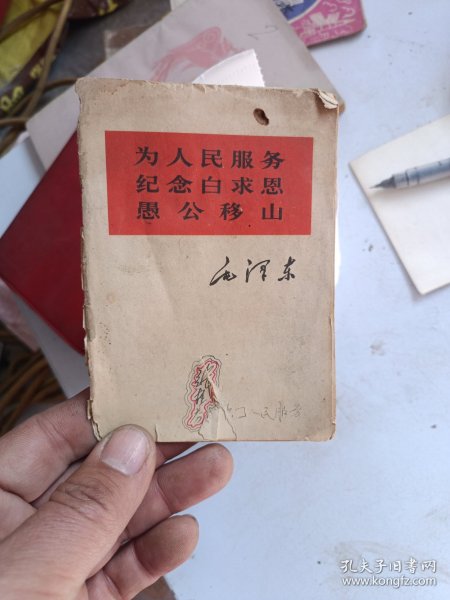 为人民服务
纪念白求恩
愚公移山
毛泽东
人民服务
孔夫子旧书网
www.kongfz.com